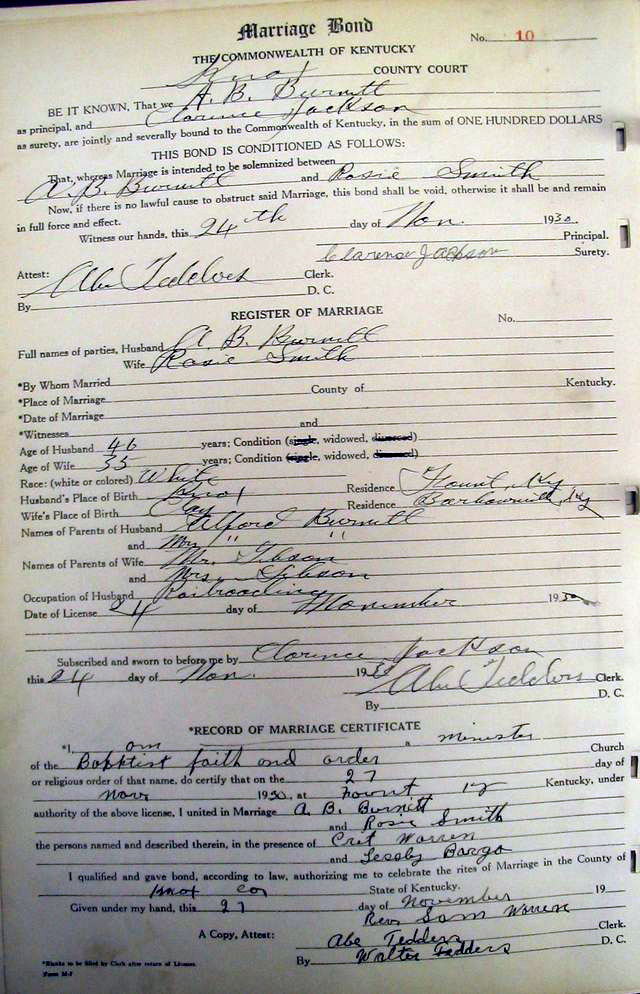 Marriage Bond
No. 10
THE COMMONWEALTH OF KENTUCKY
Knox COUNTY COURT
BE IT KNOWN, That we A. B. Burnett
as principal, and Clarence Jackson
as surety, are jointly and severally bound to the Commonwealth of Kentucky, in the sum of ONE HUNDRED DOLLARS
THIS BOND IS CONDITIONED AS FOLLOWS:
That, whereas Marriage is intended to be solemnized between
A. B. Burnett and Rosie Smith
Now, if there is no lawful cause to obstruct said Marriage, this bond shall be void, otherwise it shall be and remain
in full force and effect.
Witness our hands, this 24th day of Nov. 1930
Principal.
Clarence Jackson Surety.
Attest:
Abe Tedders Clerk.
By D. C.
REGISTER OF MARRIAGE
No.
Full names of parties, Husband A B. Burnett
Wife Rosie Smith
*By Whom Married
*Place of Marriage County of Kentucky.
*Date of Marriage
*Witnesses and
Age of Husband 46 years; Condition (single, widowed, divorced)
Age of Wife 35 years; Condition (single, widowed, divorced)
Race: (white or colored) White
Husband's Place of Birth Knox Residence Fount, Ky
Wife's Place of Birth Clay Residence Barbourville, Ky
Names of Parents of Husband Alford Burnett
and Mrs " "
Names of Parents of Wife Mr. Gibson
and Mrs. Gibson
Occupation of Husband Railroading
Date of License 24 day of November 1930
Subscribed and sworn to before me by Clarence Jackson
this 24 day of Nov. 1930
Abe Tedders Clerk.
By D. C.
*RECORD OF MARRIAGE CERTIFICATE
*I, am a minister Church
of the Bapktist faith and order day of
or religious order of that name, do certify that on the 27
Nov 1930, at Fount Ky Kentucky, under
authority of the above license, I united in Marriage A. B. Burnett
and Rosie Smith
the persons named and described therein, in the presence of Cret Warren
and Lessly Bargo
I qualified and gave bond, according to law, authorizing me to celebrate the rites of Marriage in the County of
Knox Co State of Kentucky.
Given under my hand, this 27 day of November 19
Rev Sam Warren
A Copy, Attest: Abe Tedders Clerk.
By Walter Tedders D. C.
*Blanks to be filled by Clerk after return of License.